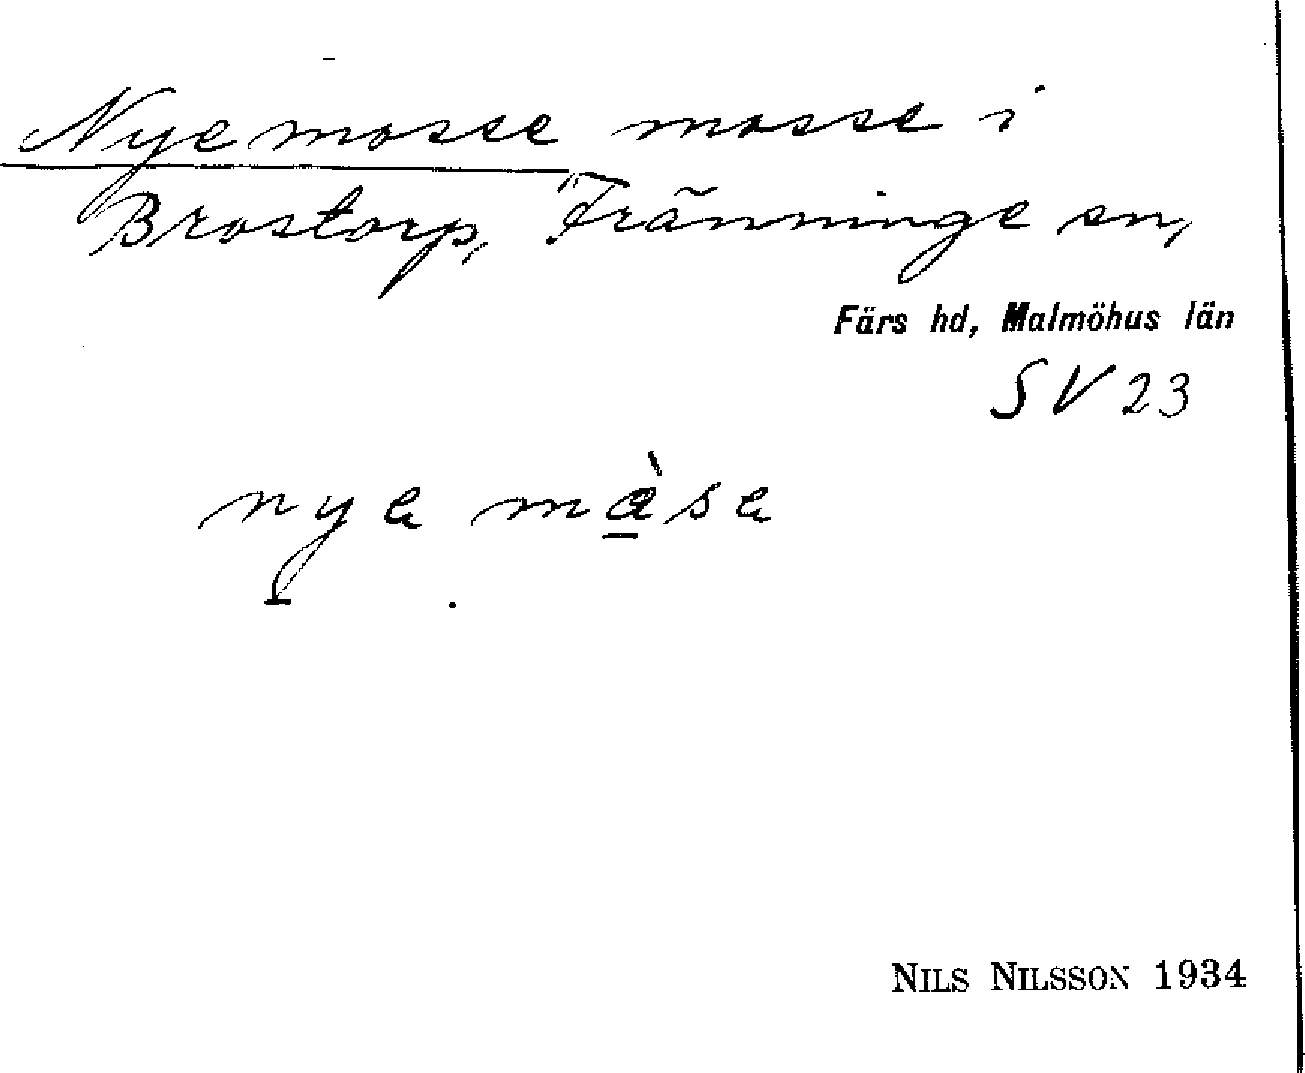 Nyemosse mosse i
Brostorp, Fränninge sn,
Färs hd, Malmöhus län
SV 23
nye måse
NILS NILSSON 1934